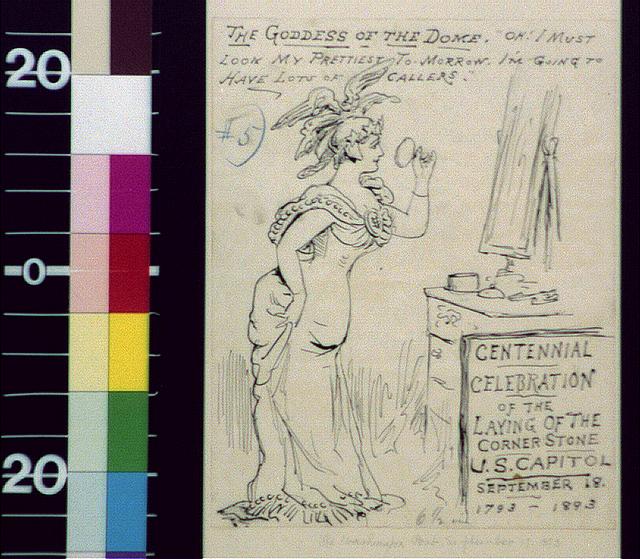 THE GODDESS OF THE DOME. "OH! I MUST
LOOK MY PRETTIEST TO-MORROW. I'M GOING TO
HAVE LOTS OF CALLERS."
#5
CENTENNIAL
CELEBRATION
OF THE
LAYING OF THE
CORNER STONE
U.S. CAPITOL
SEPTEMBER 18.
1793 - 1893
6 1/2
20
0
20